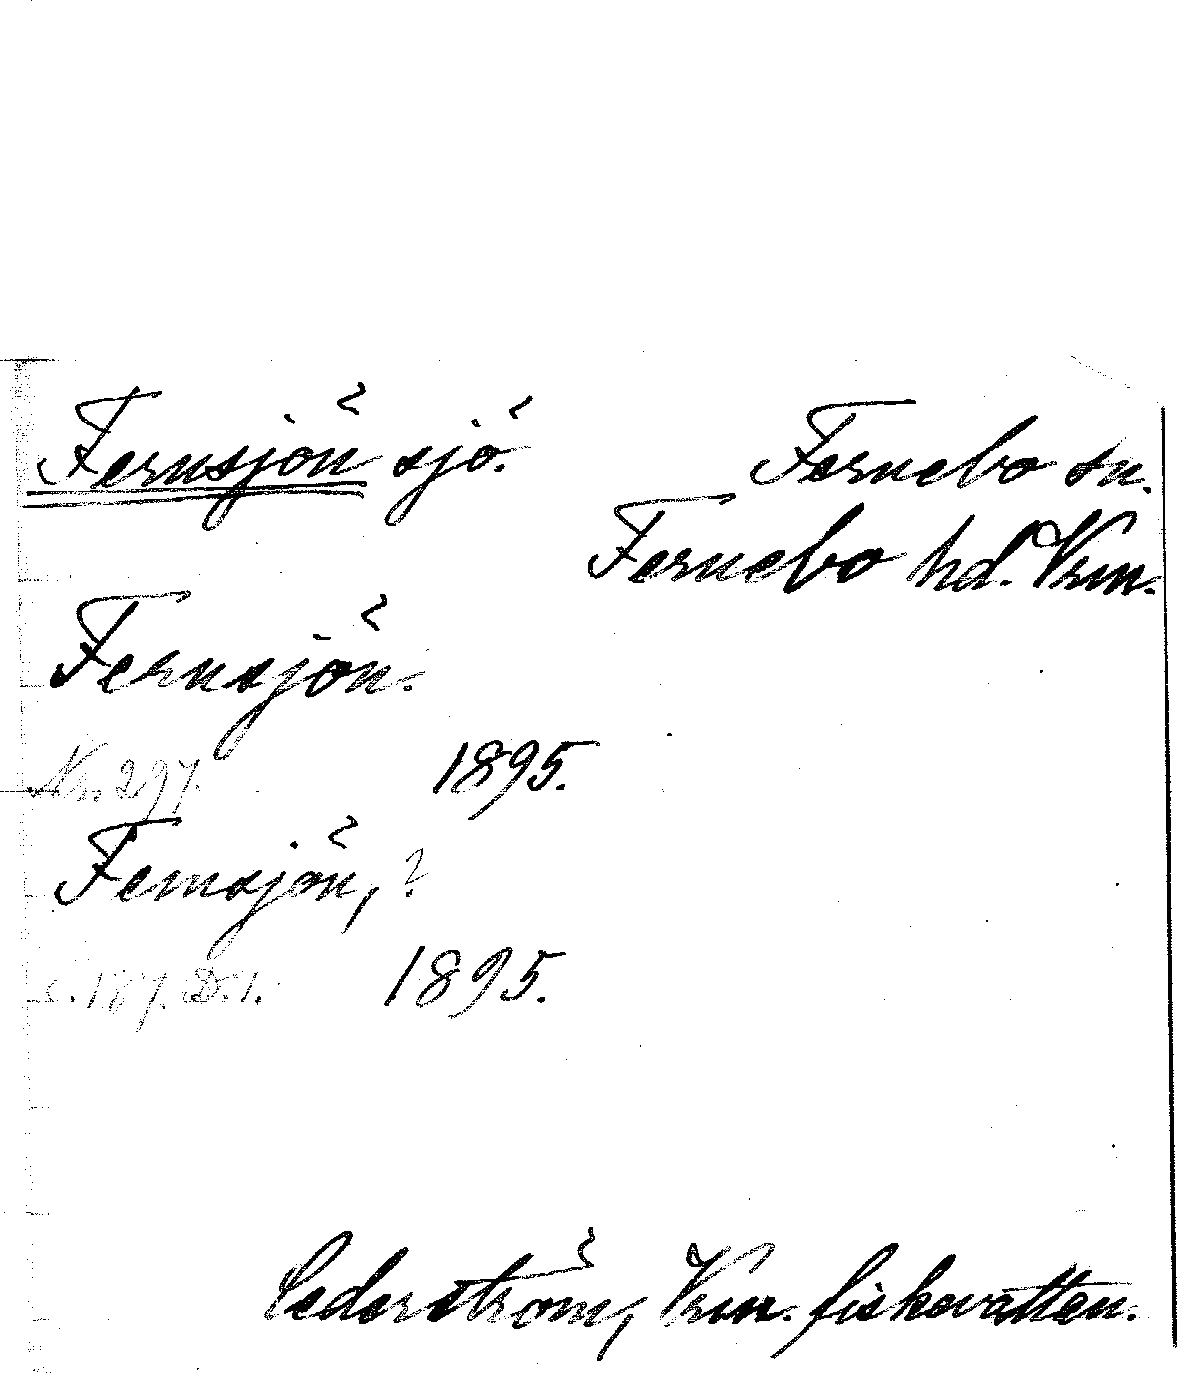 Fernsjön sjö.
Fernebo sn.
Fernebo hd. Vrm.
Fernsjön.
Nr. 297. 1895.
Femsjön, ?
s. 187. D. 1. 1895.
Cederström, Vrm. fiskevatten.